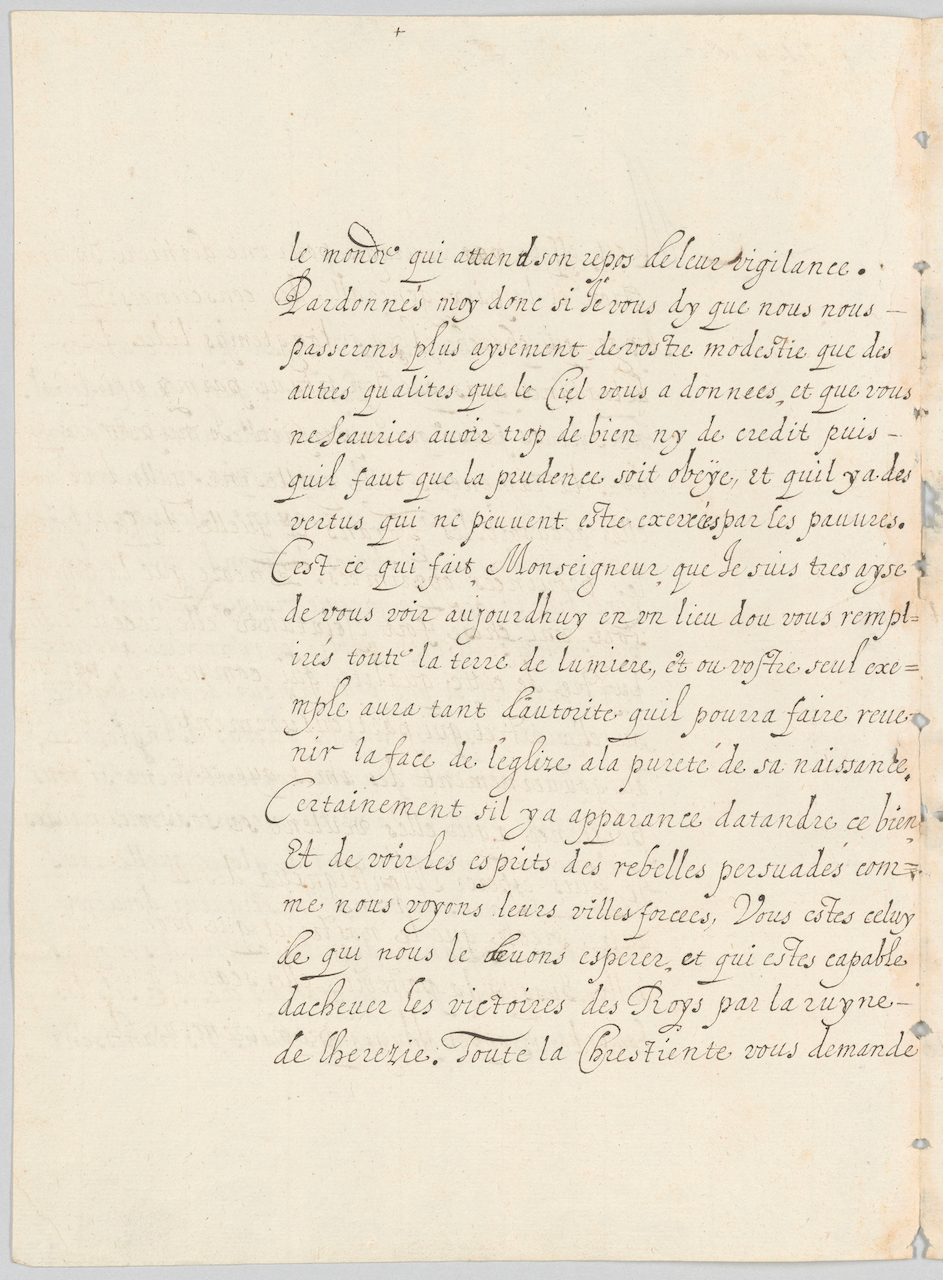 le monde qui attand son repos de leur vigilance.
Pardonnés moy donc si Je vous dy que nous nous —
passerons plus aysement de vostre modestie que des
autres qualites que le Ciel vous a donnees, et que vous
ne scauries avoir trop de bien ny de credit puis –
quil faut que la prudence soit obeÿe, et quil ya des
vertus qui ne peuuent estre exercées par les pauures.
Cest ce qui fait, Monseigneur, que Je suis tres ayse
de vous voir aujourdhuy en vn lieu dou vous rempl=
irés toute la terre de lumiere, et ou vostre seul exe=
mple aura tant d'autorite quil pourra faire reue-
nir la face de l'eglize a la pureté de sa naissance.
Certainement sil ya apparance datandre ce bien,
Et de voir les esprits des rebelles persuadés com=
me nous voyons leurs villes forcees, Vous estes celuy
de qui nous le deuons esperer, et qui estes capable
dacheuer les victoires des Roys par la ruyne —
de lherezie. Toute la Chrestiente vous demande